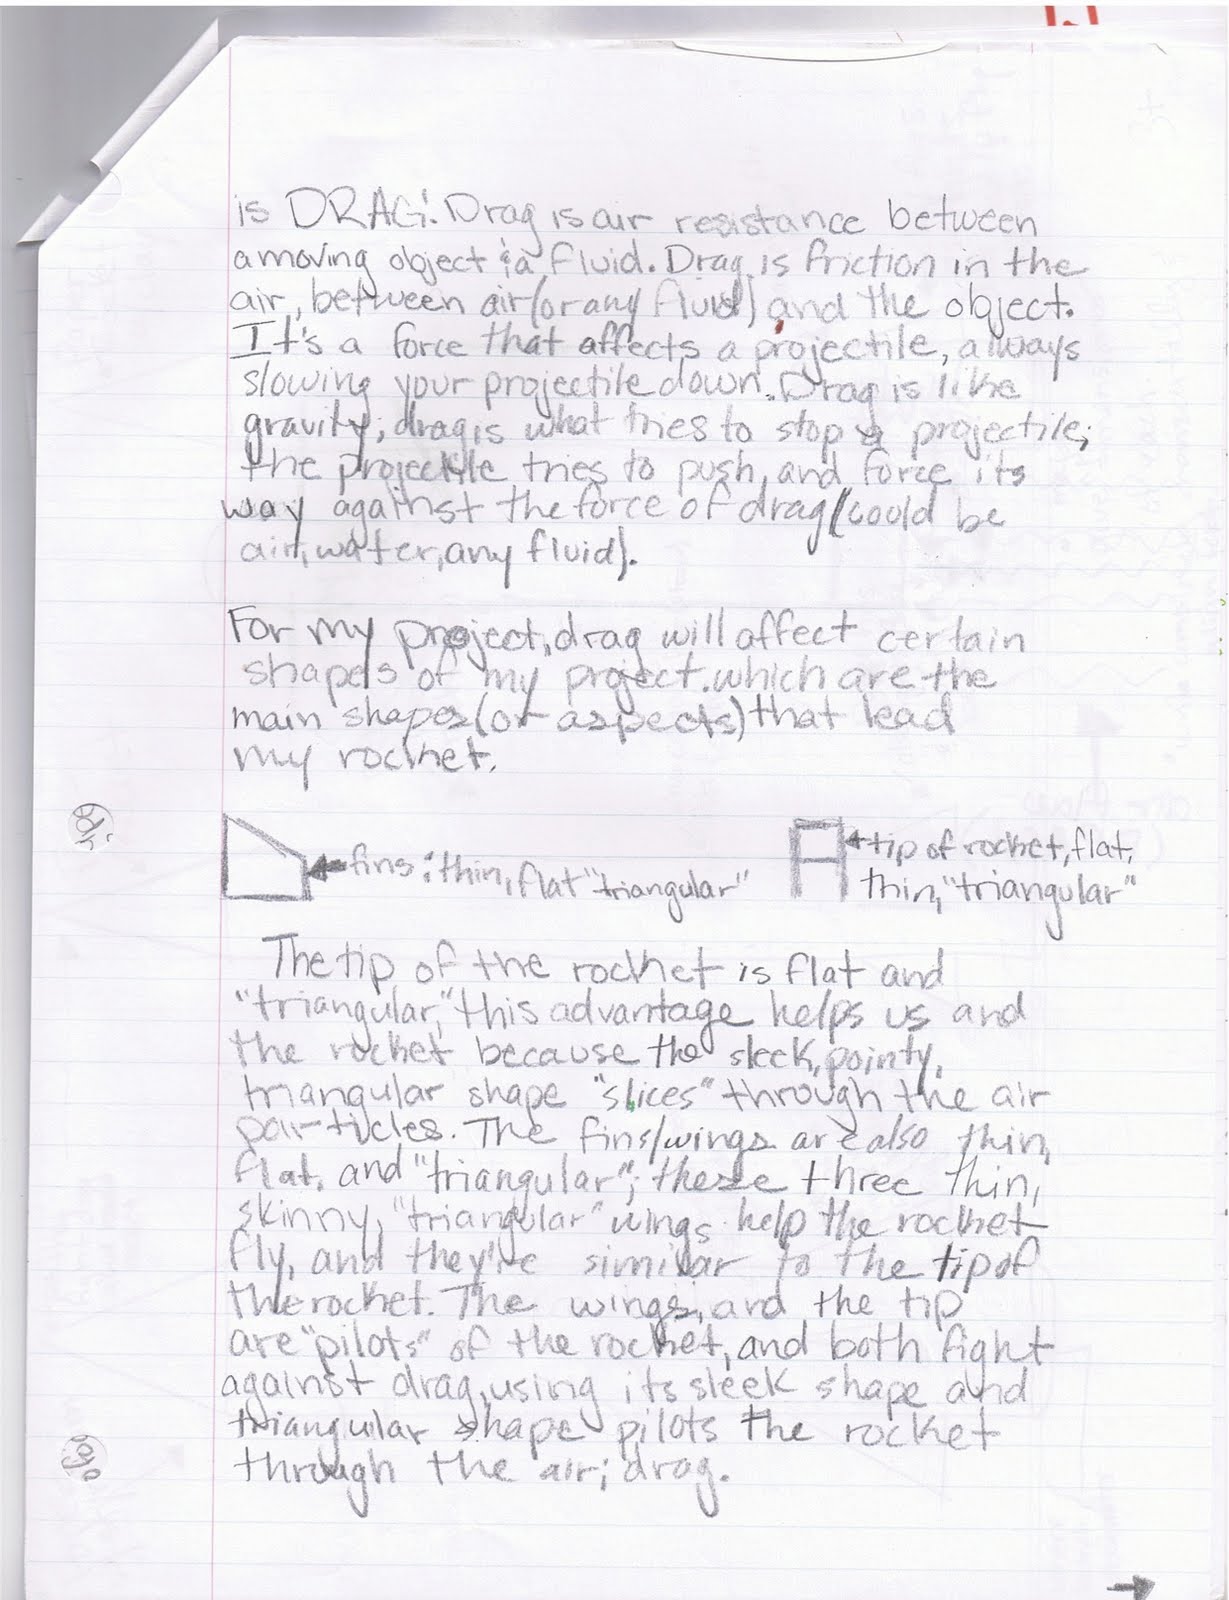 is DRAG! Drag is air resistance between
a moving object & a fluid. Drag is friction in the
air, between air (or any fluid) and the object.
It's a force that affects a projectile, always
slowing your projectile down. Drag is like
gravity; drag is what tries to stop a projectile;
the projectile tries to push, and force its
way against the force of drag (could be
air, water, any fluid).
For my project, drag will affect certain
shapes of my project. which are the
main shapes (or aspects) that lead
my rocket.
fins: thin, flat "triangular"
tip of rocket, flat,
thin, "triangular"
The tip of the rocket is flat and
"triangular," this advantage helps us and
the rocket because the sleek, pointy,
triangular shape "slices" through the air
particles. The fins/wings are also thin,
flat, and "triangular"; these three thin,
skinny, "triangular" wings help the rocket
fly, and they're similar to the tip of
the rocket. The wings, and the tip
are "pilots" of the rocket, and both fight
against drag, using its sleek shape and
triangular shape pilots the rocket
through the air; drag.